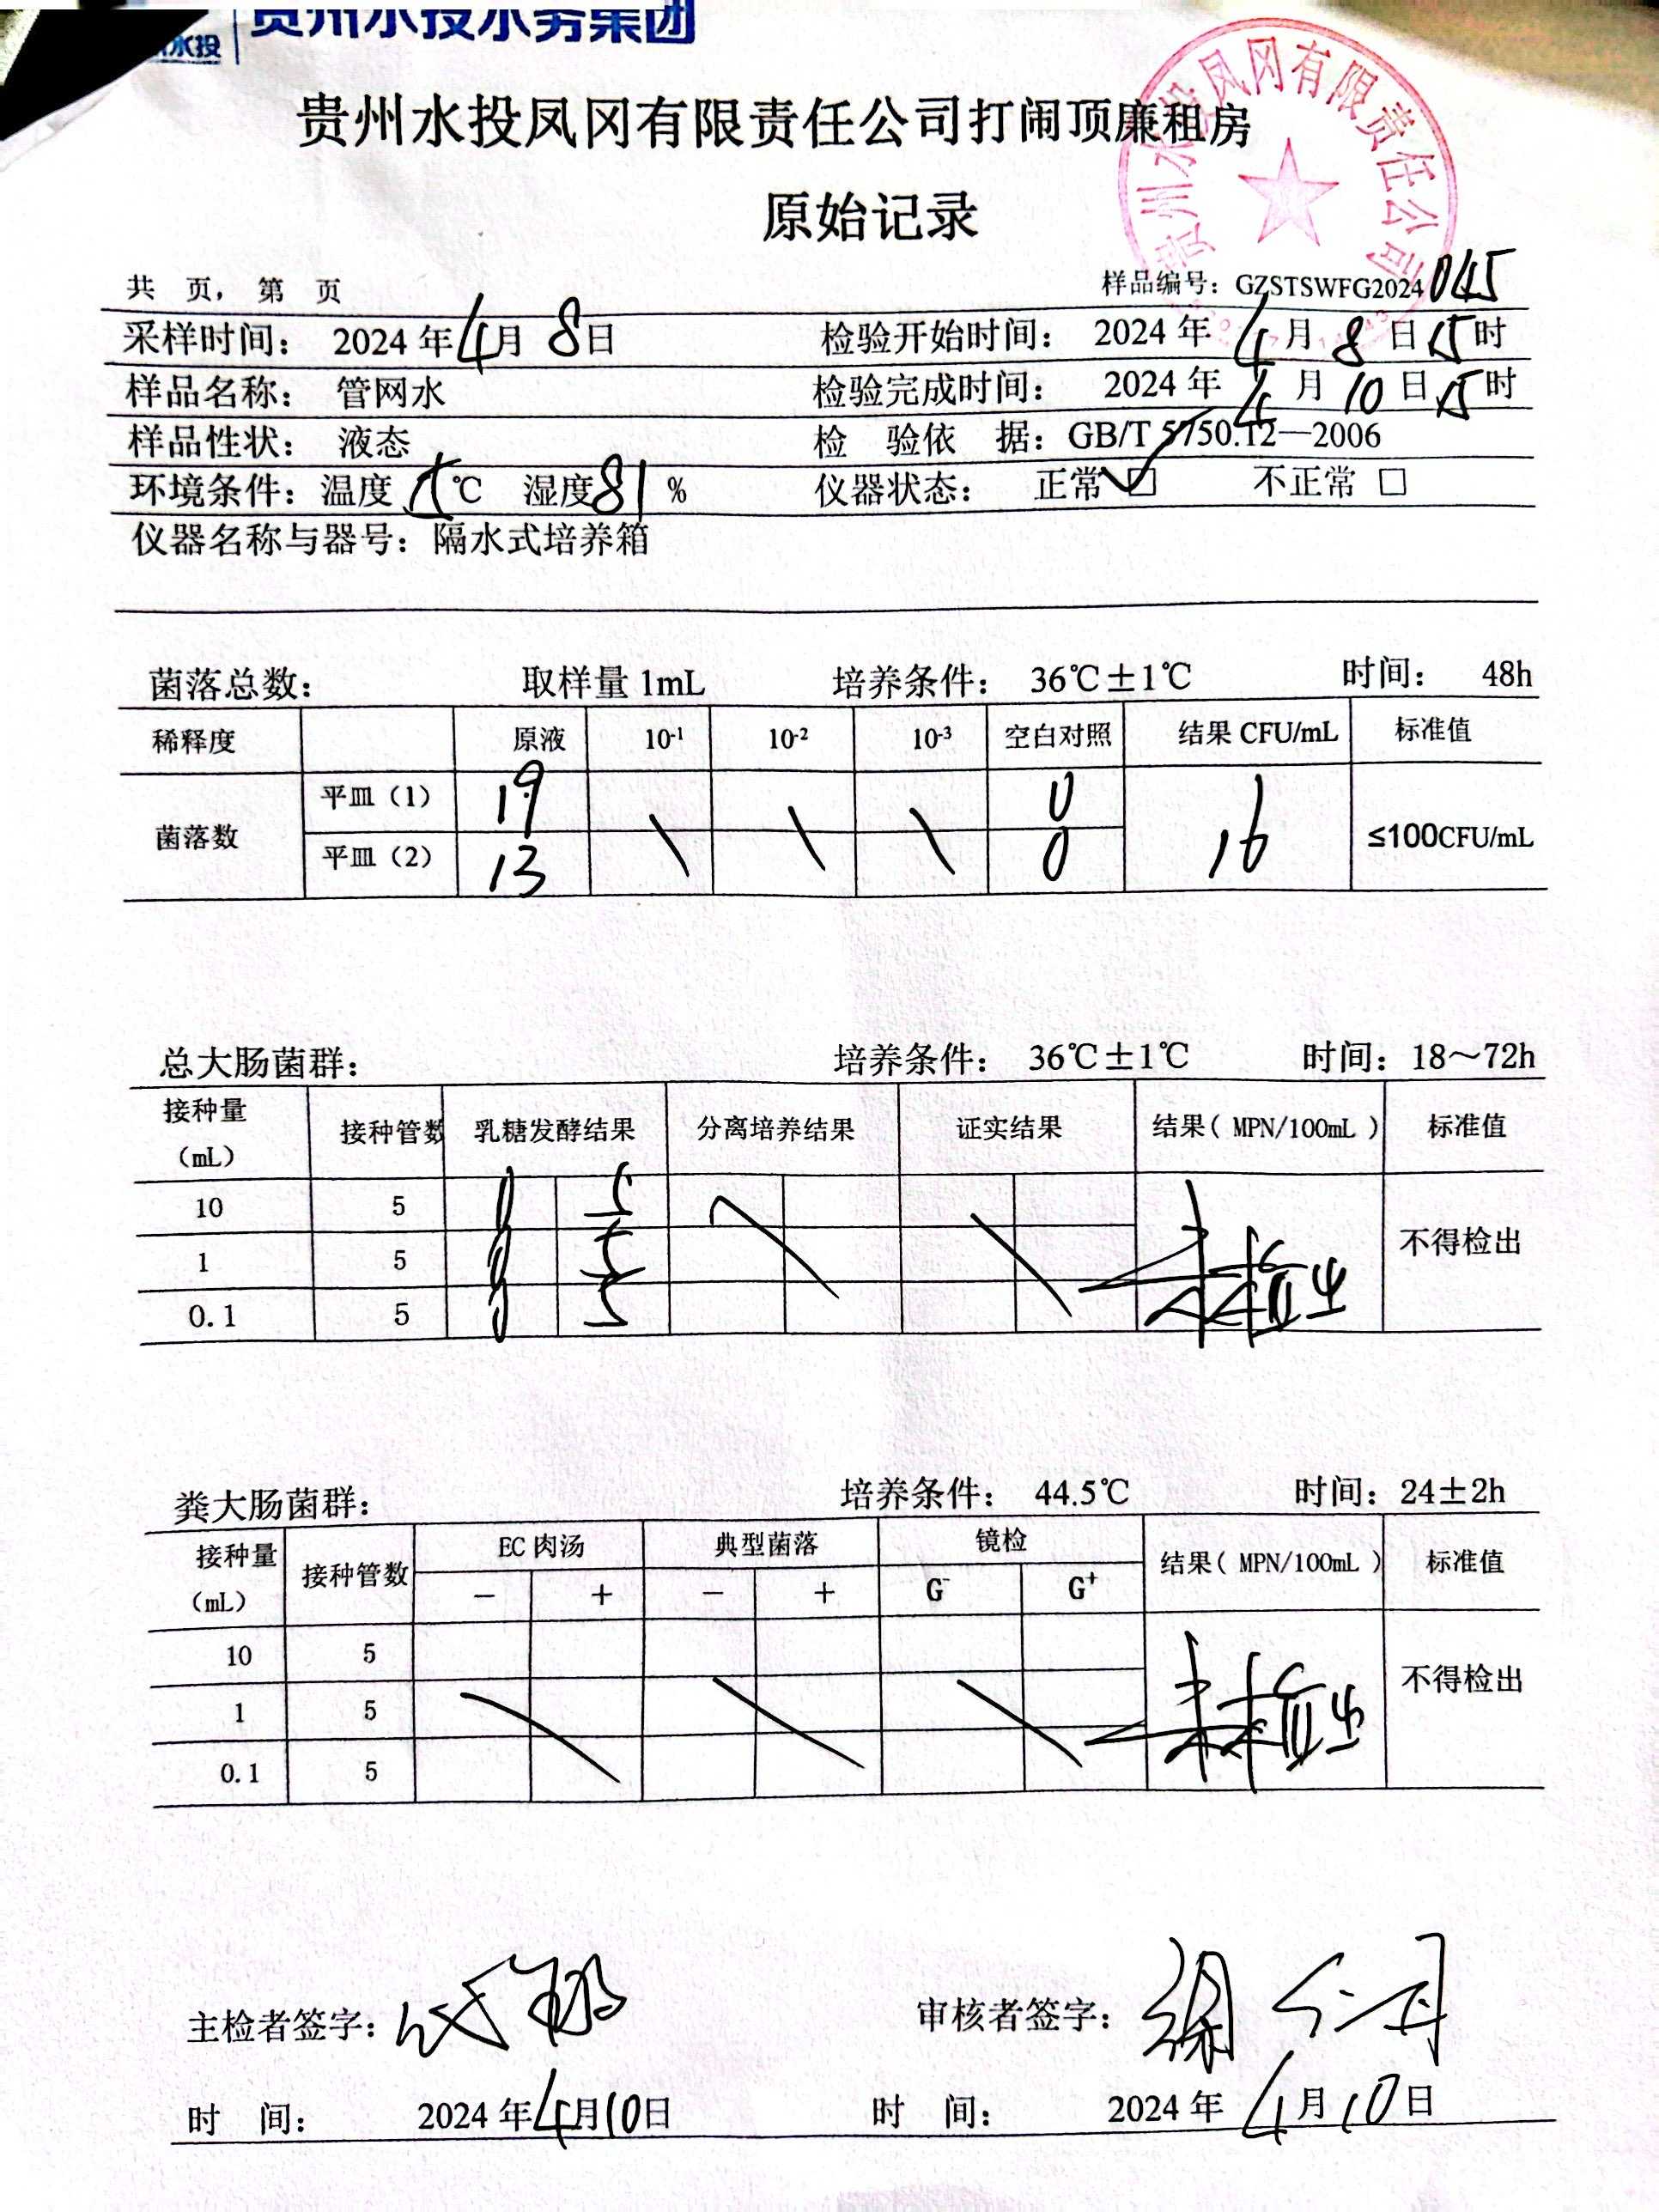 水投 贵州水投水务集团
贵州水投凤冈有限责任公司打闹顶廉租房
贵州水投凤冈有限责任公司
原始记录
共 页，第 页 样品编号：GZSTSWFG2024 045
采样时间： 2024 年 4 月 8 日 检验开始时间： 2024 年 4 月 8 日 15 时
样品名称： 管网水 检验完成时间： 2024 年 4 月 10 日 15 时
样品性状： 液态 检 验依 据：GB/T 5750.12—2006
环境条件：温度 ℃ 湿度 81 % 仪器状态： 正常 ✓□ 不正常 □
仪器名称与器号：隔水式培养箱
菌落总数： 取样量 1mL 培养条件： 36℃±1℃ 时间： 48h
稀释度 原液 10-1 10-2 10-3 空白对照 结果 CFU/mL 标准值
菌落数 平皿（1） 19 \ \ \ 0 16 ≤100CFU/mL
平皿（2） 13 0
总大肠菌群： 培养条件： 36℃±1℃ 时间：18～72h
接种量（mL） 接种管数 乳糖发酵结果 分离培养结果 证实结果 结果（ MPN/100mL ） 标准值
10 5 0 5 \ \ 未检出 不得检出
1 5 0 5
0.1 5 0 5
粪大肠菌群： 培养条件： 44.5℃ 时间：24±2h
接种量（mL） 接种管数 EC 肉汤 典型菌落 镜检 结果（ MPN/100mL ） 标准值
— + — + G- G+
10 5 未检出 不得检出
1 5 \ \ \
0.1 5
主检者签字： 审核者签字：
时 间： 2024 年 4 月 10 日 时 间： 2024 年 4 月 10 日